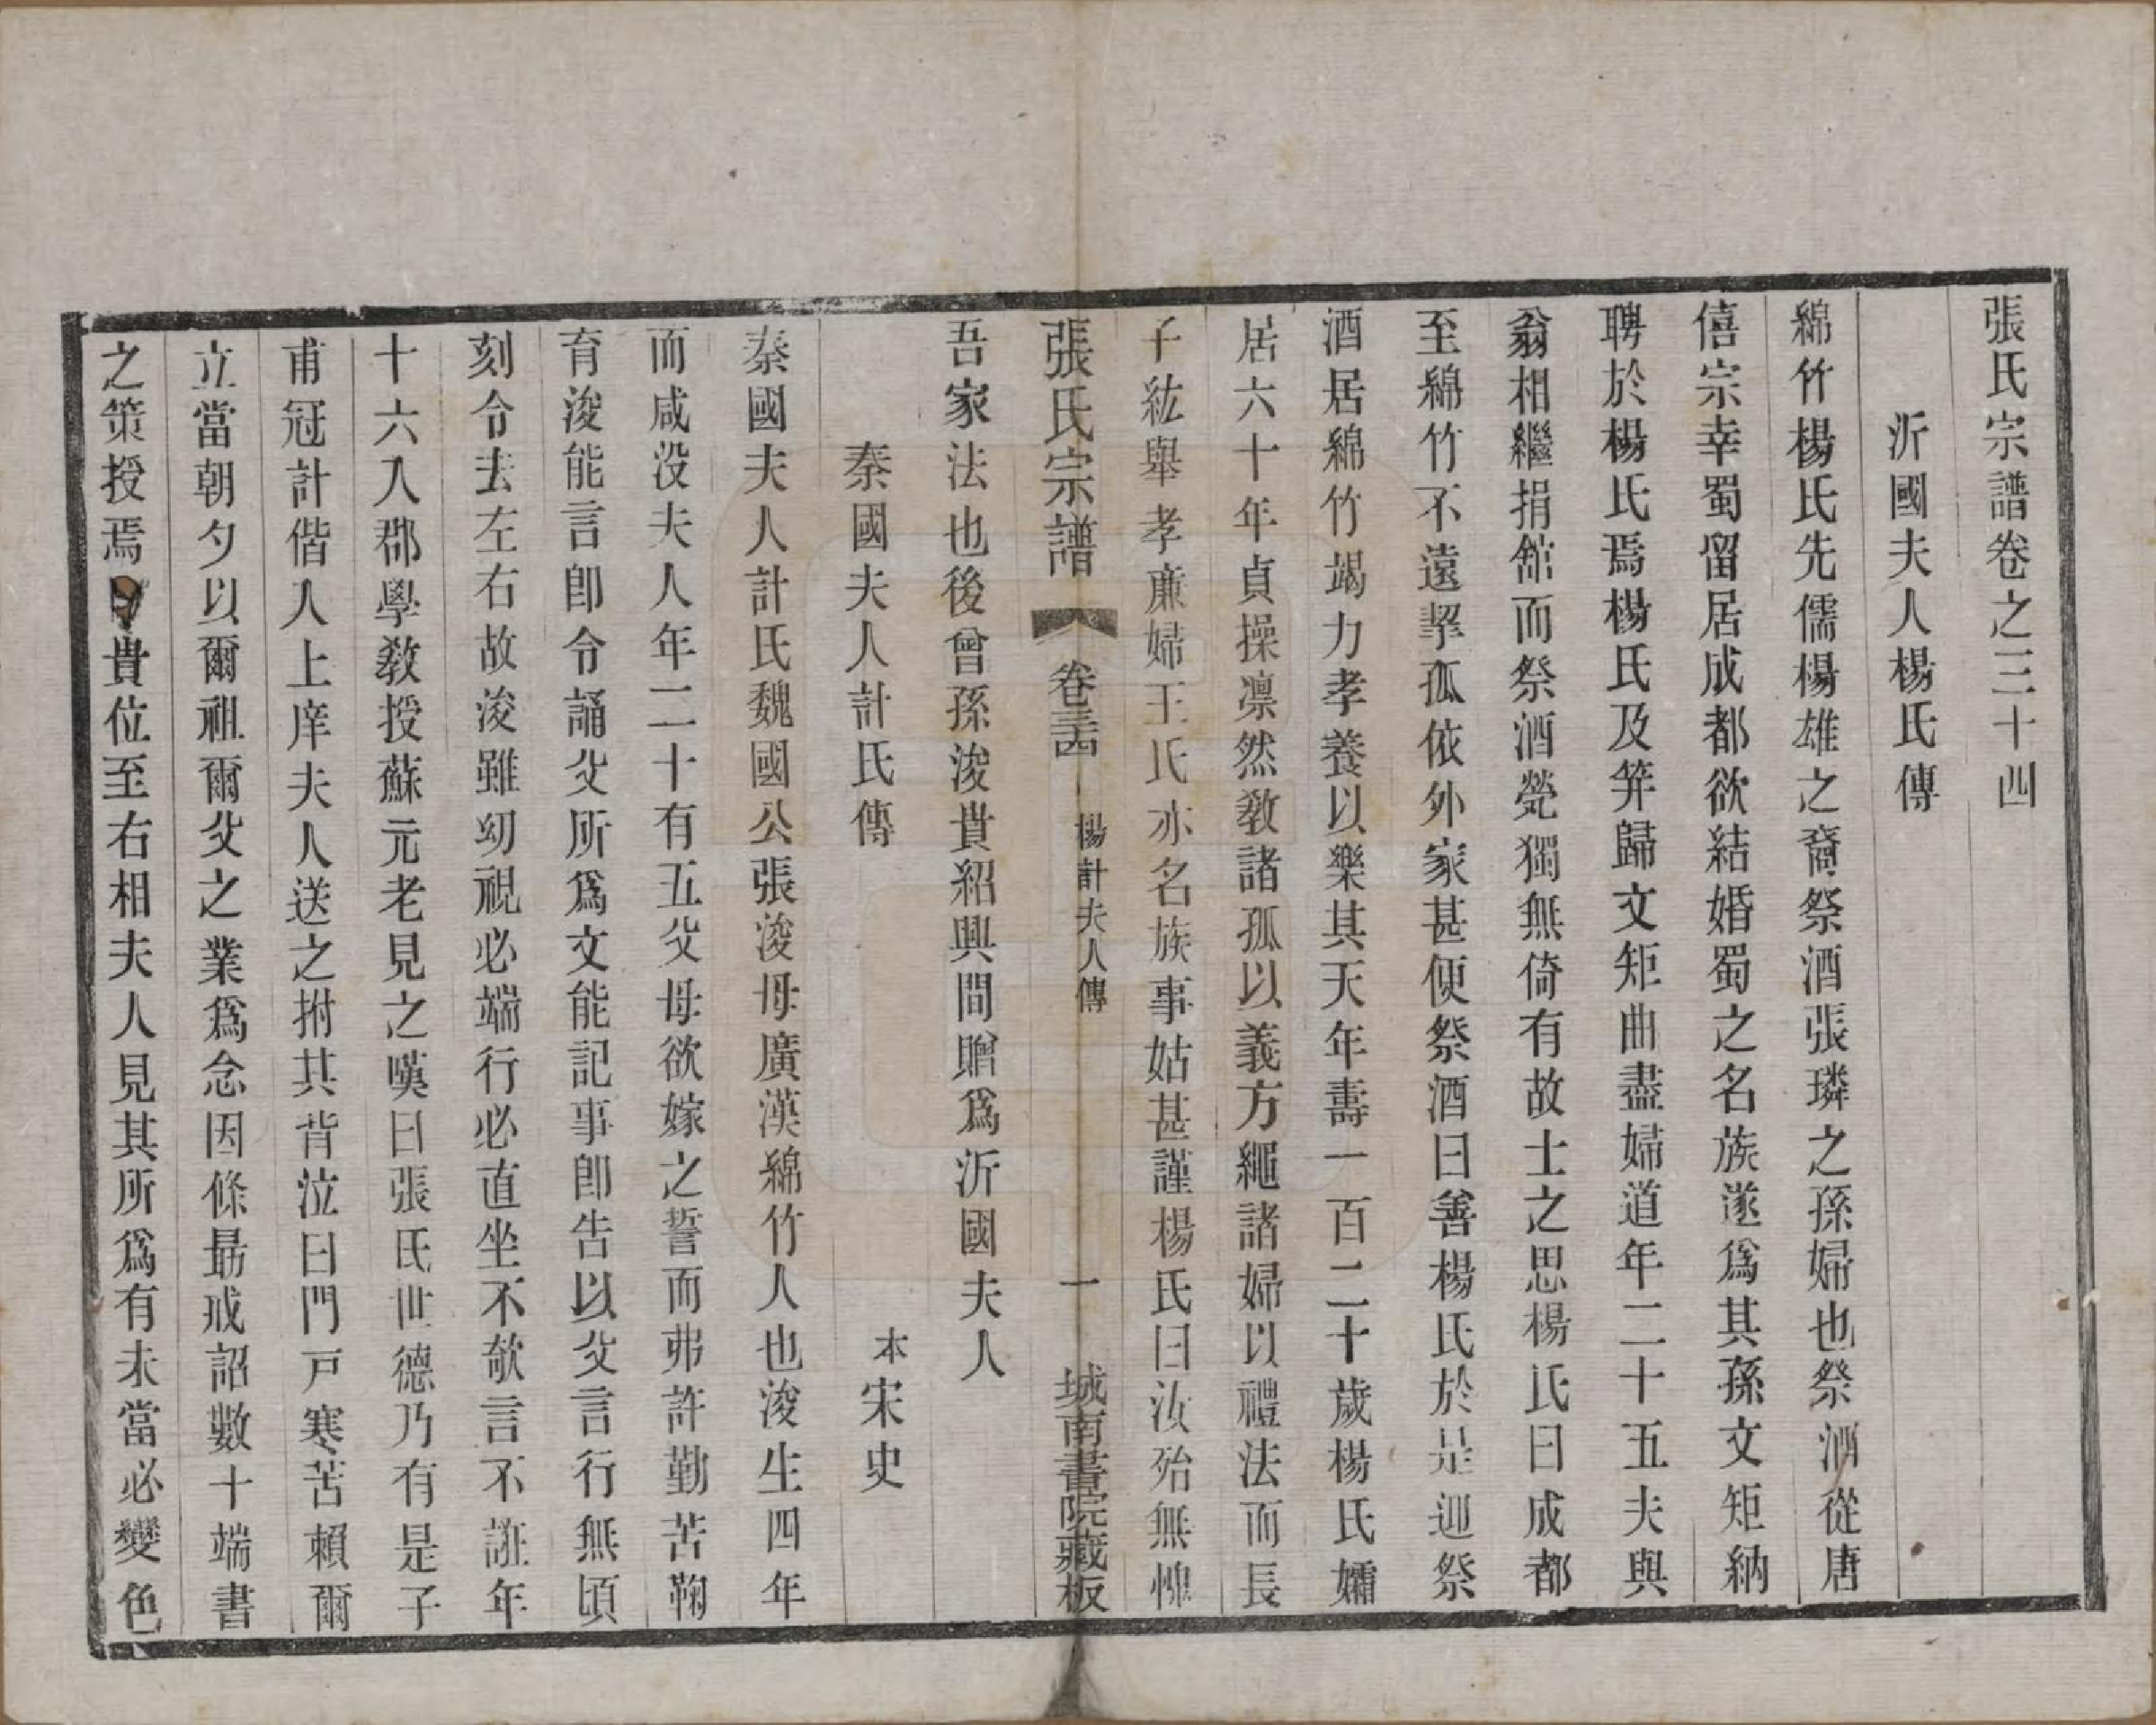 張氏宗譜卷之三十四
沂國夫人楊氏傳
綿竹楊氏先儒楊雄之裔祭酒張璘之孫婦也祭酒從唐
僖宗幸蜀留居成都欲結婚蜀之名族遂爲其孫文矩納
聘於楊氏焉楊氏及笄歸文矩曲盡婦道年二十五夫與
翁相繼捐舘而祭酒煢獨無倚有故士之思楊氏曰成都
至綿竹不遠挈孤依外家甚便祭酒曰善楊氏於是迎祭
酒居綿竹竭力孝養以樂其天年壽一百二十歲楊氏孀
居六十年貞操凛然敎諸孤以義方繩諸婦以禮法而長
子紘舉孝廉婦王氏亦名族事姑甚謹楊氏曰汝殆無愧
張氏宗譜 卷三十四 楊計夫人傳 一 城南書院藏板
吾家法也後曾孫浚貴紹興間贈爲沂國夫人
秦國夫人計氏傳 本宋史
秦國夫人計氏魏國公張浚母廣漢綿竹人也浚生四年
而咸没夫人年二十有五父母欲嫁之誓而弗許勤苦鞠
育浚能言卽令誦父所爲文能記事卽告以父言行無頃
刻令去左右故浚雖幼視必端行必直坐不欹言不誑年
十六入郡學敎授蘇元老見之嘆曰張氏世德乃有是子
甫冠計偕入上庠夫人送之拊其背泣曰門戸寒苦賴爾
立當朝夕以爾祖爾父之業爲念因條最戒詔數十端書
之策授焉 貴位至右相夫人見其所爲有未當必變色